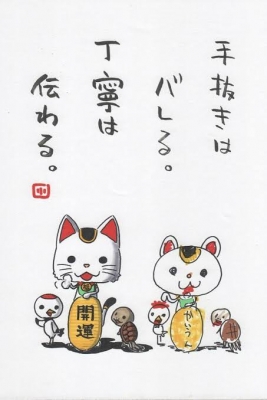 手抜きは
バレる。
丁寧は
伝わる。
開運
かいうん